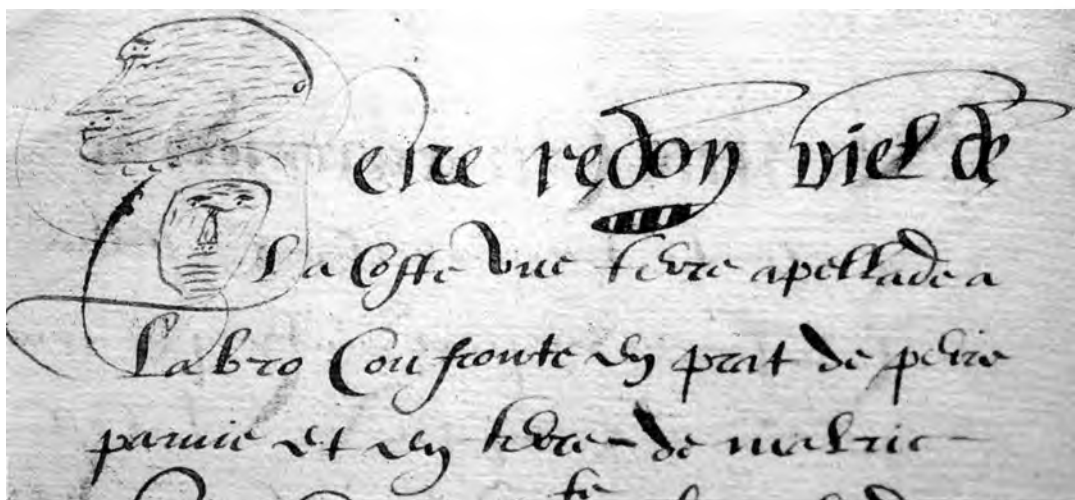 Peire redon viel de
La Coste une terre apellade a
Labro Confronte en prat de peire
paruie et en terre de malric